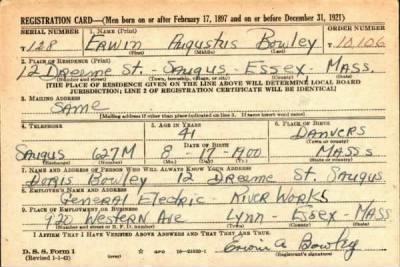 REGISTRATION CARD—(Men born on or after February 17, 1897 and on or before December 31, 1921)
SERIAL NUMBER 1. NAME (Print) ORDER NUMBER
T128 ERWIN Augustus Bowley T10,106
(First) (Middle) (Last)
2. PLACE OF RESIDENCE (Print)
12 St. Saugus Essex MASS.
(Number and street) (Town, township, village, or city) (County) (State)
[THE PLACE OF RESIDENCE GIVEN ON THE LINE ABOVE WILL DETERMINE LOCAL BOARD
JURISDICTION; LINE 2 OF REGISTRATION CERTIFICATE WILL BE IDENTICAL]
3. MAILING ADDRESS
SAME
[Mailing address if other than place indicated on line 2. If same insert word same]
4. TELEPHONE 5. AGE IN YEARS 6. PLACE OF BIRTH
41 DANVERS
DATE OF BIRTH (Town or county)
Saugus 627M 8 - 17 - 1900 MASS
(Exchange) (Number) (Mo.) (Day) (Yr.) (State or country)
7. NAME AND ADDRESS OF PERSON WHO WILL ALWAYS KNOW YOUR ADDRESS
DORIS Bowley 12 St. Saugus
8. EMPLOYER'S NAME AND ADDRESS
General Electric RIVER WORKS
9. PLACE OF EMPLOYMENT OR BUSINESS
920 WESTERN AVE LYNN - ESSEX - MASS
(Number and street or R. F. D. number) (Town) (County) (State)
I AFFIRM THAT I HAVE VERIFIED ABOVE ANSWERS AND THAT THEY ARE TRUE.
D. S. S. Form 1
(Revised 1-1-42) (over) 16-21630-1
Erwin A Bowley
(Registrant's signature)